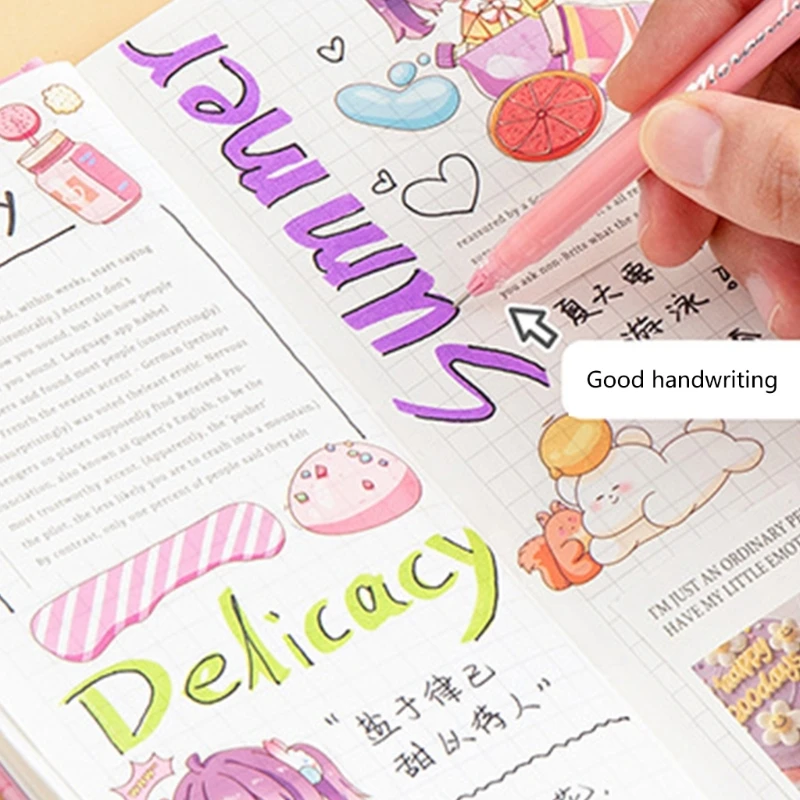 Summer
reassured by a
you ask non-Brits what the
夏天要
游泳
Good handwriting
I'M JUST AN ORDINARY PE
HAVE MY LITTLE EMOT
happy
goodays
y
nd, within weeks, start saying
ironically.) Accents don't
ow you sound, but also how people
you sound. Language app babbel
ers and found most people (unsurprisingly)
French the sexiest accent - German (perhaps
unsurprisingly) was voted theleast erotic. Nervous
sengers on planes supposedly find Received Pro-
nunciation, also known as Queen's English, to be the
most trustworthy accent. (Apparently, the 'posher'
the pilot, the less likely you are to crash into a mountain.)
By contrast, only one percent of people said they felt
Delicacy
"盐于律己
甜以待人"